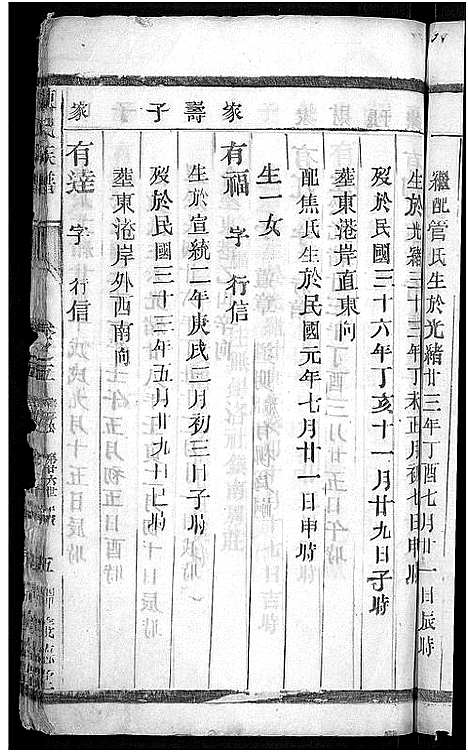 繼配管氏生於光緒廿三年丁酉七月廿一日辰時
生於光緒三十三年丁未正月初七日申時
歿於民國三十六年丁亥十一月廿九日子時
塟東港岸直東向
配焦氏生於民國元年七月廿一日申時
生一女
家壽子
有福 字 行信
生於宣統二年庚戌三月初三日子時
歿於民國三十三年五月廿九日巳時
塟東港岸外西南向
家
有達 字 行信
氏族譜 卷之五 五